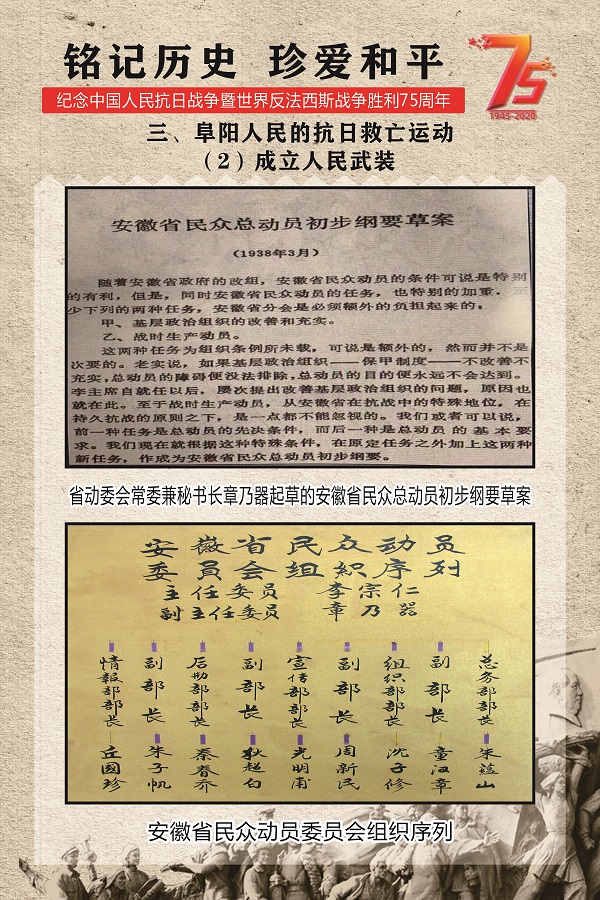 铭记历史 珍爱和平
75
1945-2020
纪念中国人民抗日战争暨世界反法西斯战争胜利75周年
三、阜阳人民的抗日救亡运动
（2）成立人民武装
安徽省民众总动员初步纲要草案
（1938年3月）
随着安徽省政府的改组，安徽省民众动员的条件可说是特别
的有利，但是，同时安徽省民众动员的任务，也特别的加重，至
少下列的两种任务，安徽省分会是必须额外的负担起来的。
甲、基层政治组织的改善和充实。
乙、战时生产动员。
这两种任务为组织条例所未载，可说是额外的，然而并不是
次要的。老实说，如果基层政治组织——保甲制度——不改善不
充实，总动员的障碍便没法排除，总动员的目的便永远不会达到。
李主席自就任以后，屡次提出改善基层政治组织的问题，原因也
就在此。至于战时生产动员，从安徽省在抗战中的特殊地位，在
持久抗战的原则之下，是一点都不能忽视的。我们或者可以说，
前一种任务是总动员的先决条件，而后一种是总动员的基本要
求。我们现在就根据这种特殊条件，在原定任务之外加上这两种
新任务，作成为安徽省民众总动员初步纲要。
省动委会常委兼秘书长章乃器起草的安徽省民众总动员初步纲要草案
安徽省民众动员
委员会组织序列
主任委员 李宗仁
副主任委员 章乃器
情報部部长 副部长 后勤部部长 副部长 宣传部部长 副部长 组织部部长 副部长 总务部部长
丘國珍 朱子帆 秦春乔 狄超白 光明甫 周新民 沈子修 童汉章 朱蕴山
安徽省民众动员委员会组织序列